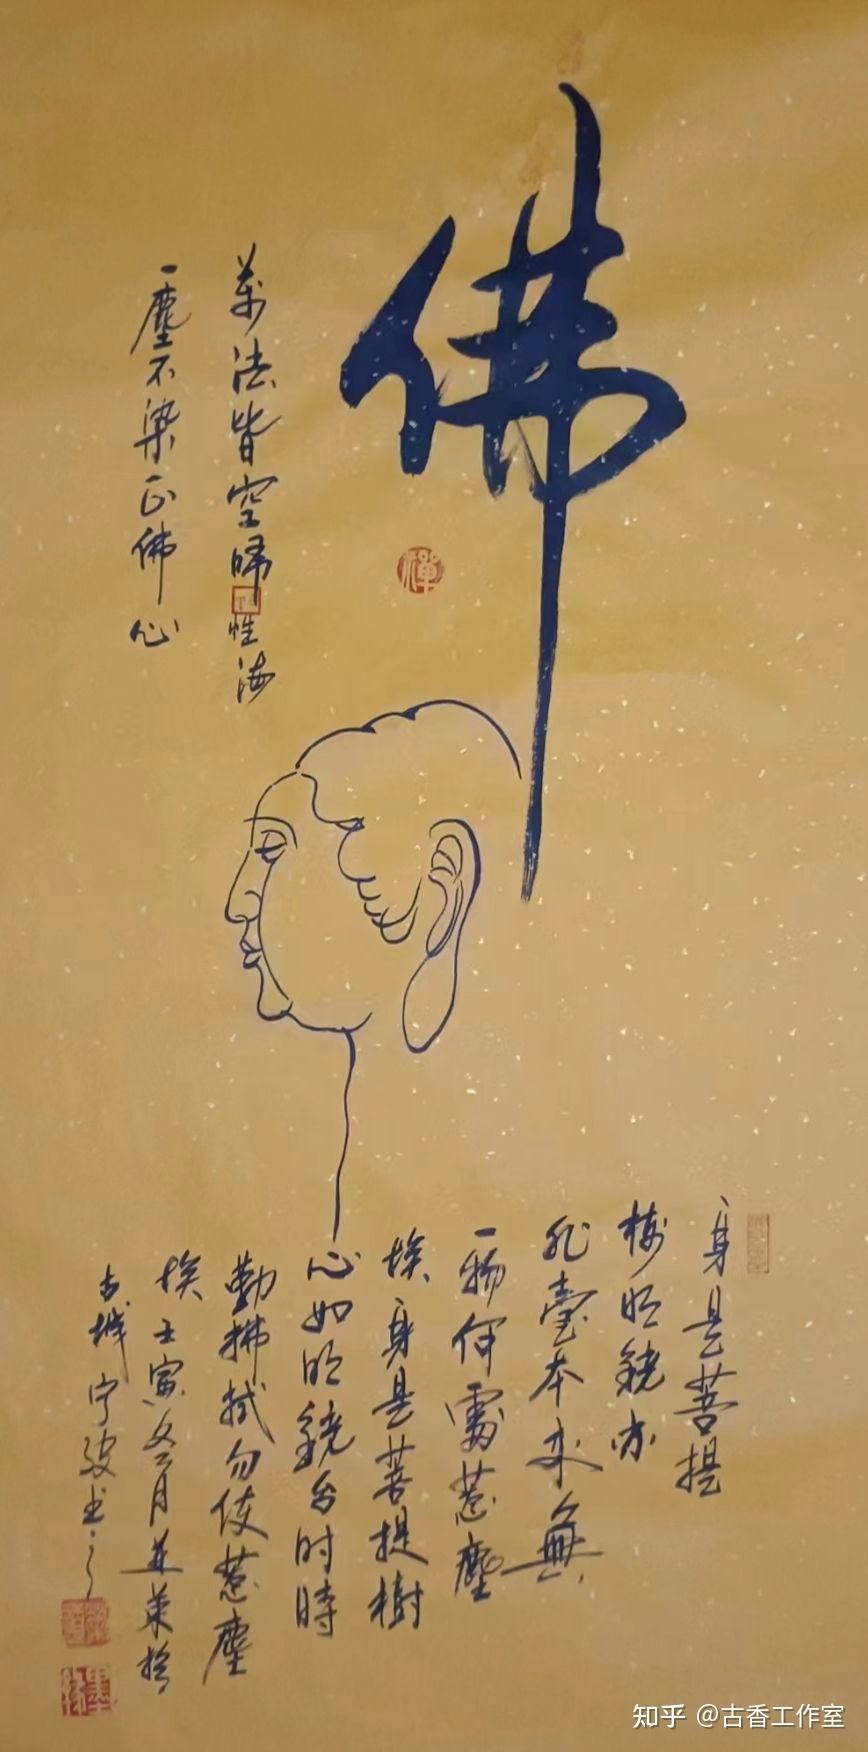 佛
禅
萬法皆空歸性海
一塵不染正佛心
身是菩提
樹明鏡亦
非臺本来無
一物何處惹塵
埃身是菩提樹
心如明鏡台时時
勤拂拭勿使惹塵
埃壬寅冬月並英於
古城宁波书之
知乎 @古香工作室